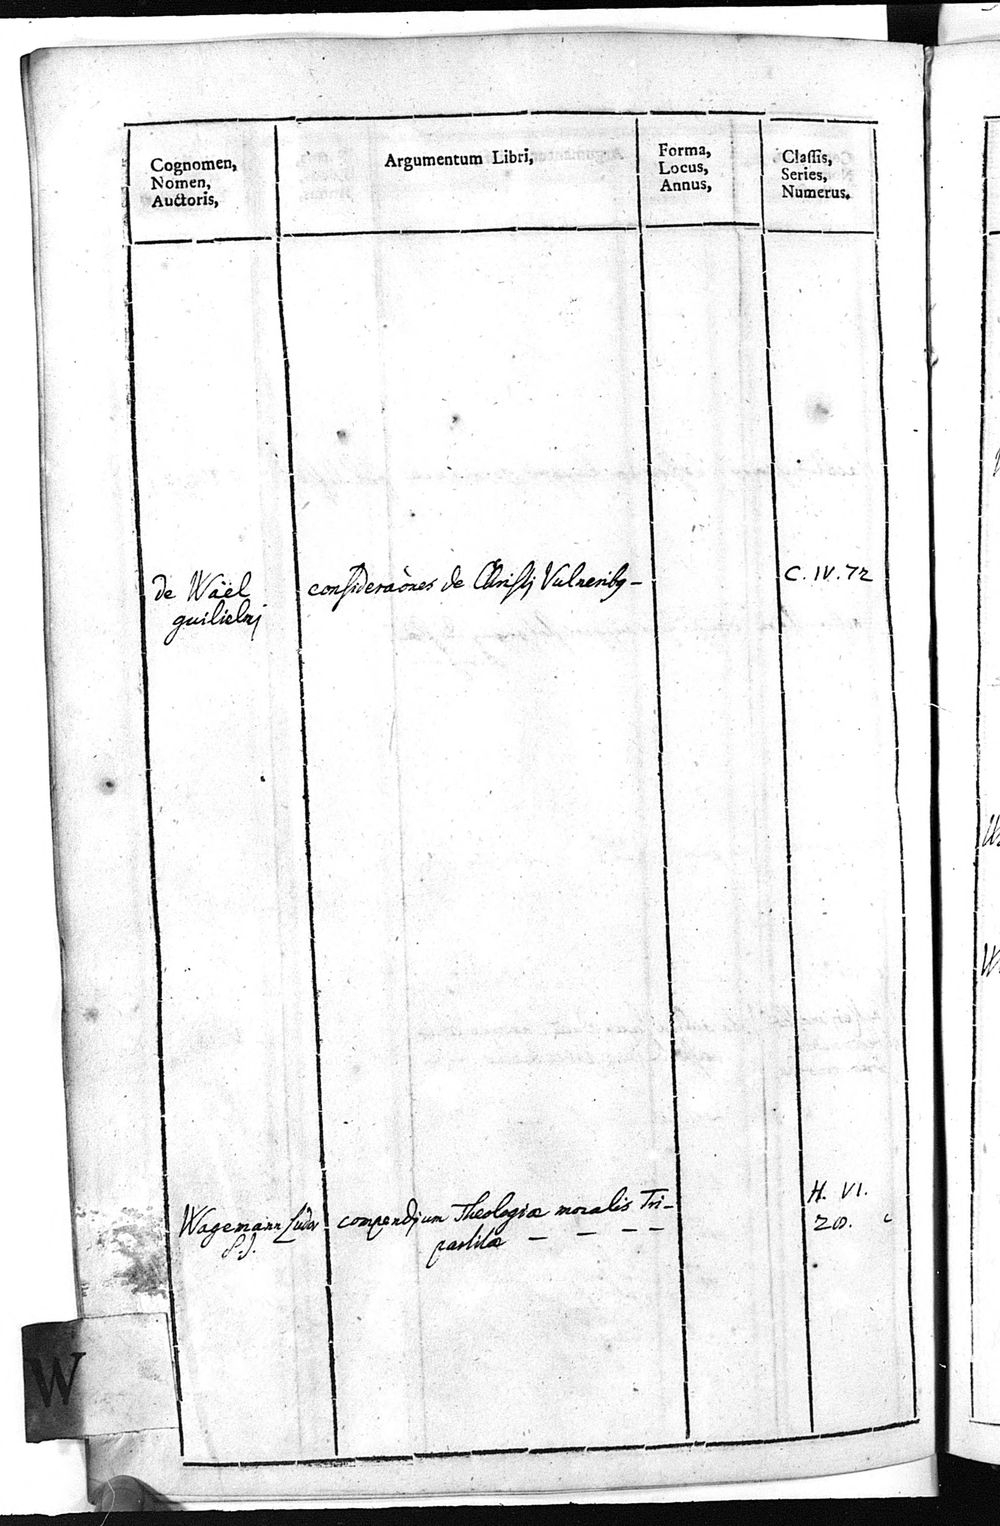 Cognomen,
Nomen,
Auctoris,
Argumentum Libri,
Forma,
Locus,
Annus,
Classis,
Series,
Numerus.
de Waël
guilielmj
consideraōnes de Christj Vulneribq –
C. IV. 72
Wagemann Ludov
S. J.
compendjum Theologiæ moralis Tri–
partitæ – – – –
H. VI.
20.
W